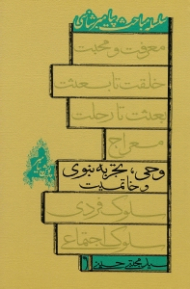 سلسله مباحث پیامبرشناسی
معرفت و محبت
خلقت تا بعثت
بعثت تا رحلت
معراج
وحی، تجربه نبوی
و خاتمیت
سلوک فردی
سلوک اجتماعی
سید مجتبی حسینی